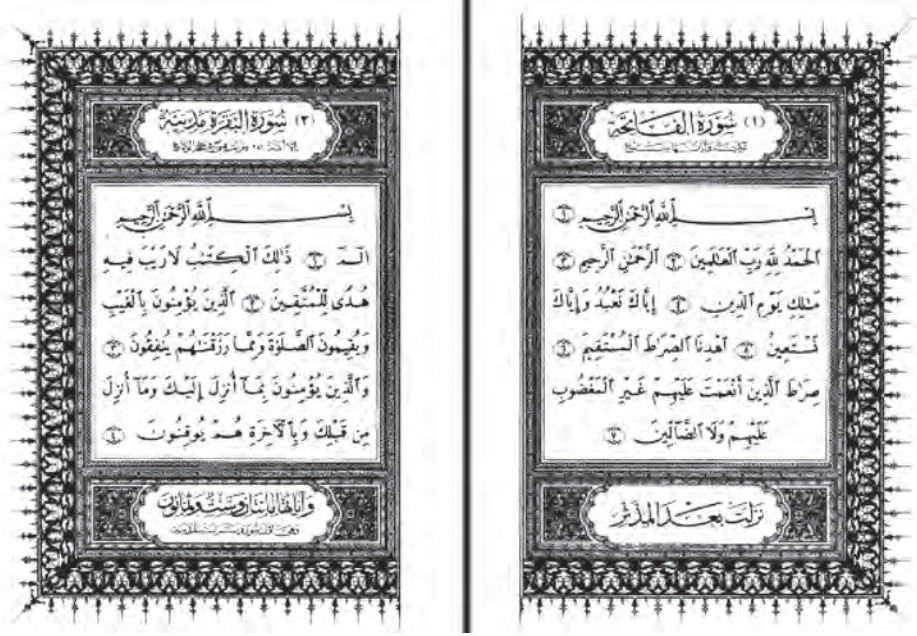 (١) سُورَةُ الفَاتِحَة
بِسْمِ ٱللَّهِ ٱلرَّحْمَٰنِ ٱلرَّحِيمِ ۝١
ٱلْحَمْدُ لِلَّهِ رَبِّ ٱلْعَٰلَمِينَ ۝٢ ٱلرَّحْمَٰنِ ٱلرَّحِيمِ ۝٣
مَٰلِكِ يَوْمِ ٱلدِّينِ ۝٤ إِيَّاكَ نَعْبُدُ وَإِيَّاكَ
نَسْتَعِينُ ۝٥ ٱهْدِنَا ٱلصِّرَٰطَ ٱلْمُسْتَقِيمَ ۝٦
صِرَٰطَ ٱلَّذِينَ أَنْعَمْتَ عَلَيْهِمْ غَيْرِ ٱلْمَغْضُوبِ
عَلَيْهِمْ وَلَا ٱلضَّآلِّينَ ۝٧
نزلت بعد المدثر
(٢) سُورَةُ البَقَرَة مَدنيَّة
بِسْمِ ٱللَّهِ ٱلرَّحْمَٰنِ ٱلرَّحِيمِ
الٓمٓ ۝١ ذَٰلِكَ ٱلْكِتَٰبُ لَا رَيْبَ فِيهِ
هُدًى لِّلْمُتَّقِينَ ۝٢ ٱلَّذِينَ يُؤْمِنُونَ بِٱلْغَيْبِ
وَيُقِيمُونَ ٱلصَّلَوٰةَ وَمِمَّا رَزَقْنَٰهُمْ يُنفِقُونَ ۝٣
وَٱلَّذِينَ يُؤْمِنُونَ بِمَآ أُنزِلَ إِلَيْكَ وَمَآ أُنزِلَ
مِن قَبْلِكَ وَبِٱلْءَاخِرَةِ هُمْ يُوقِنُونَ ۝٤
وآياتها مائتان وست وثمانون